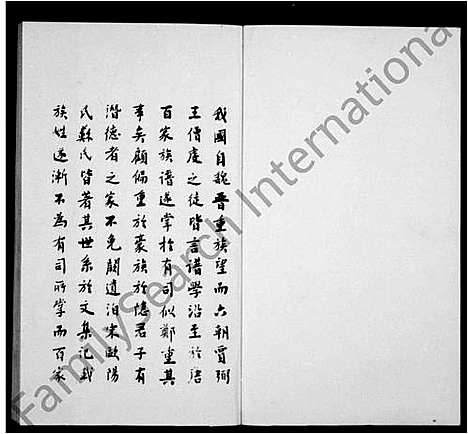 我國自魏晉重族望而六朝賈弼
王僧虔之徒皆言譜學沿至於唐
百家族譜遂掌於有司似鄭重其
事矣顧偏重於豪族於隱君子有
潛德者之家不免闕遺洎宋歐陽
氏蘇氏皆著其世系於文集記我
族姓遂漸不為有司所掌而百家
FamilySearch International